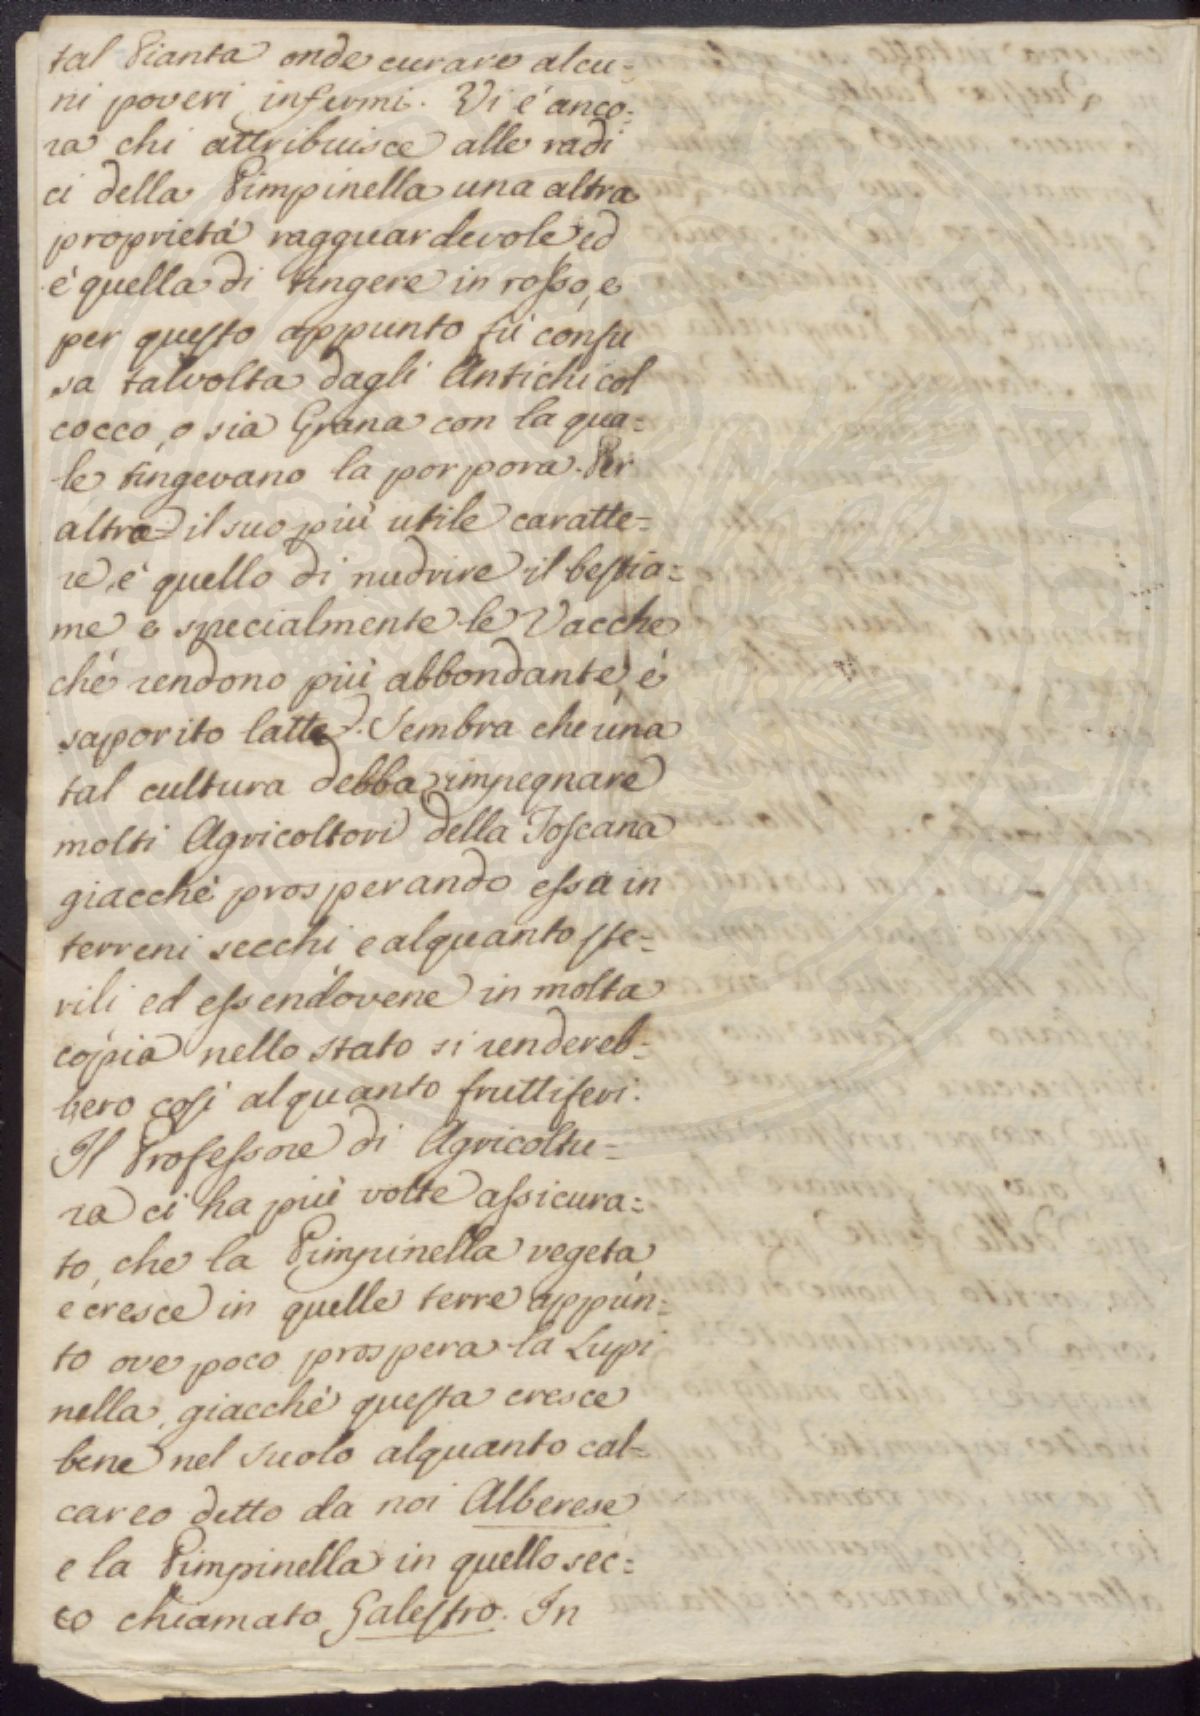 tal Pianta onde curare alcu=
ni poveri infermi. Vi é anco=
ra chi attribuisce alle radi
ci della Pimpinella una altra
proprietá ragguardevole ed
è quella di tingere in rosso, e
per questo appunto fù confu
sa talvolta dagli Antichi col
cocco, o sia Grana con la qua=
le tingevano la porpora. Per
altro il suo più utile caratte=
re é quello di nudrire il bestia=
me e specialmente le Vacche
ché rendono più abbondante, é
saporito latte. Sembra che una
tal cultura debba impegnare
molti Agricoltori della Toscana
giacchè prosperando essa in
terreni secchi, e alquanto ste=
rili ed essendovene in molta
copia nello stato si rendereb=
bero così alquanto fruttiferi.
Il Professore di Agricoltu=
ra ci ha più volte assicura=
to, che la Pimpinella vegeta
e cresce in quelle terre appun=
to ove poco prospera la Lupi
nella, giacchè questa cresce
bene nel suolo alquanto cal=
careo detto da noi Alberese
e la Pimpinella in quello sec=
co chiamato Galestro. In